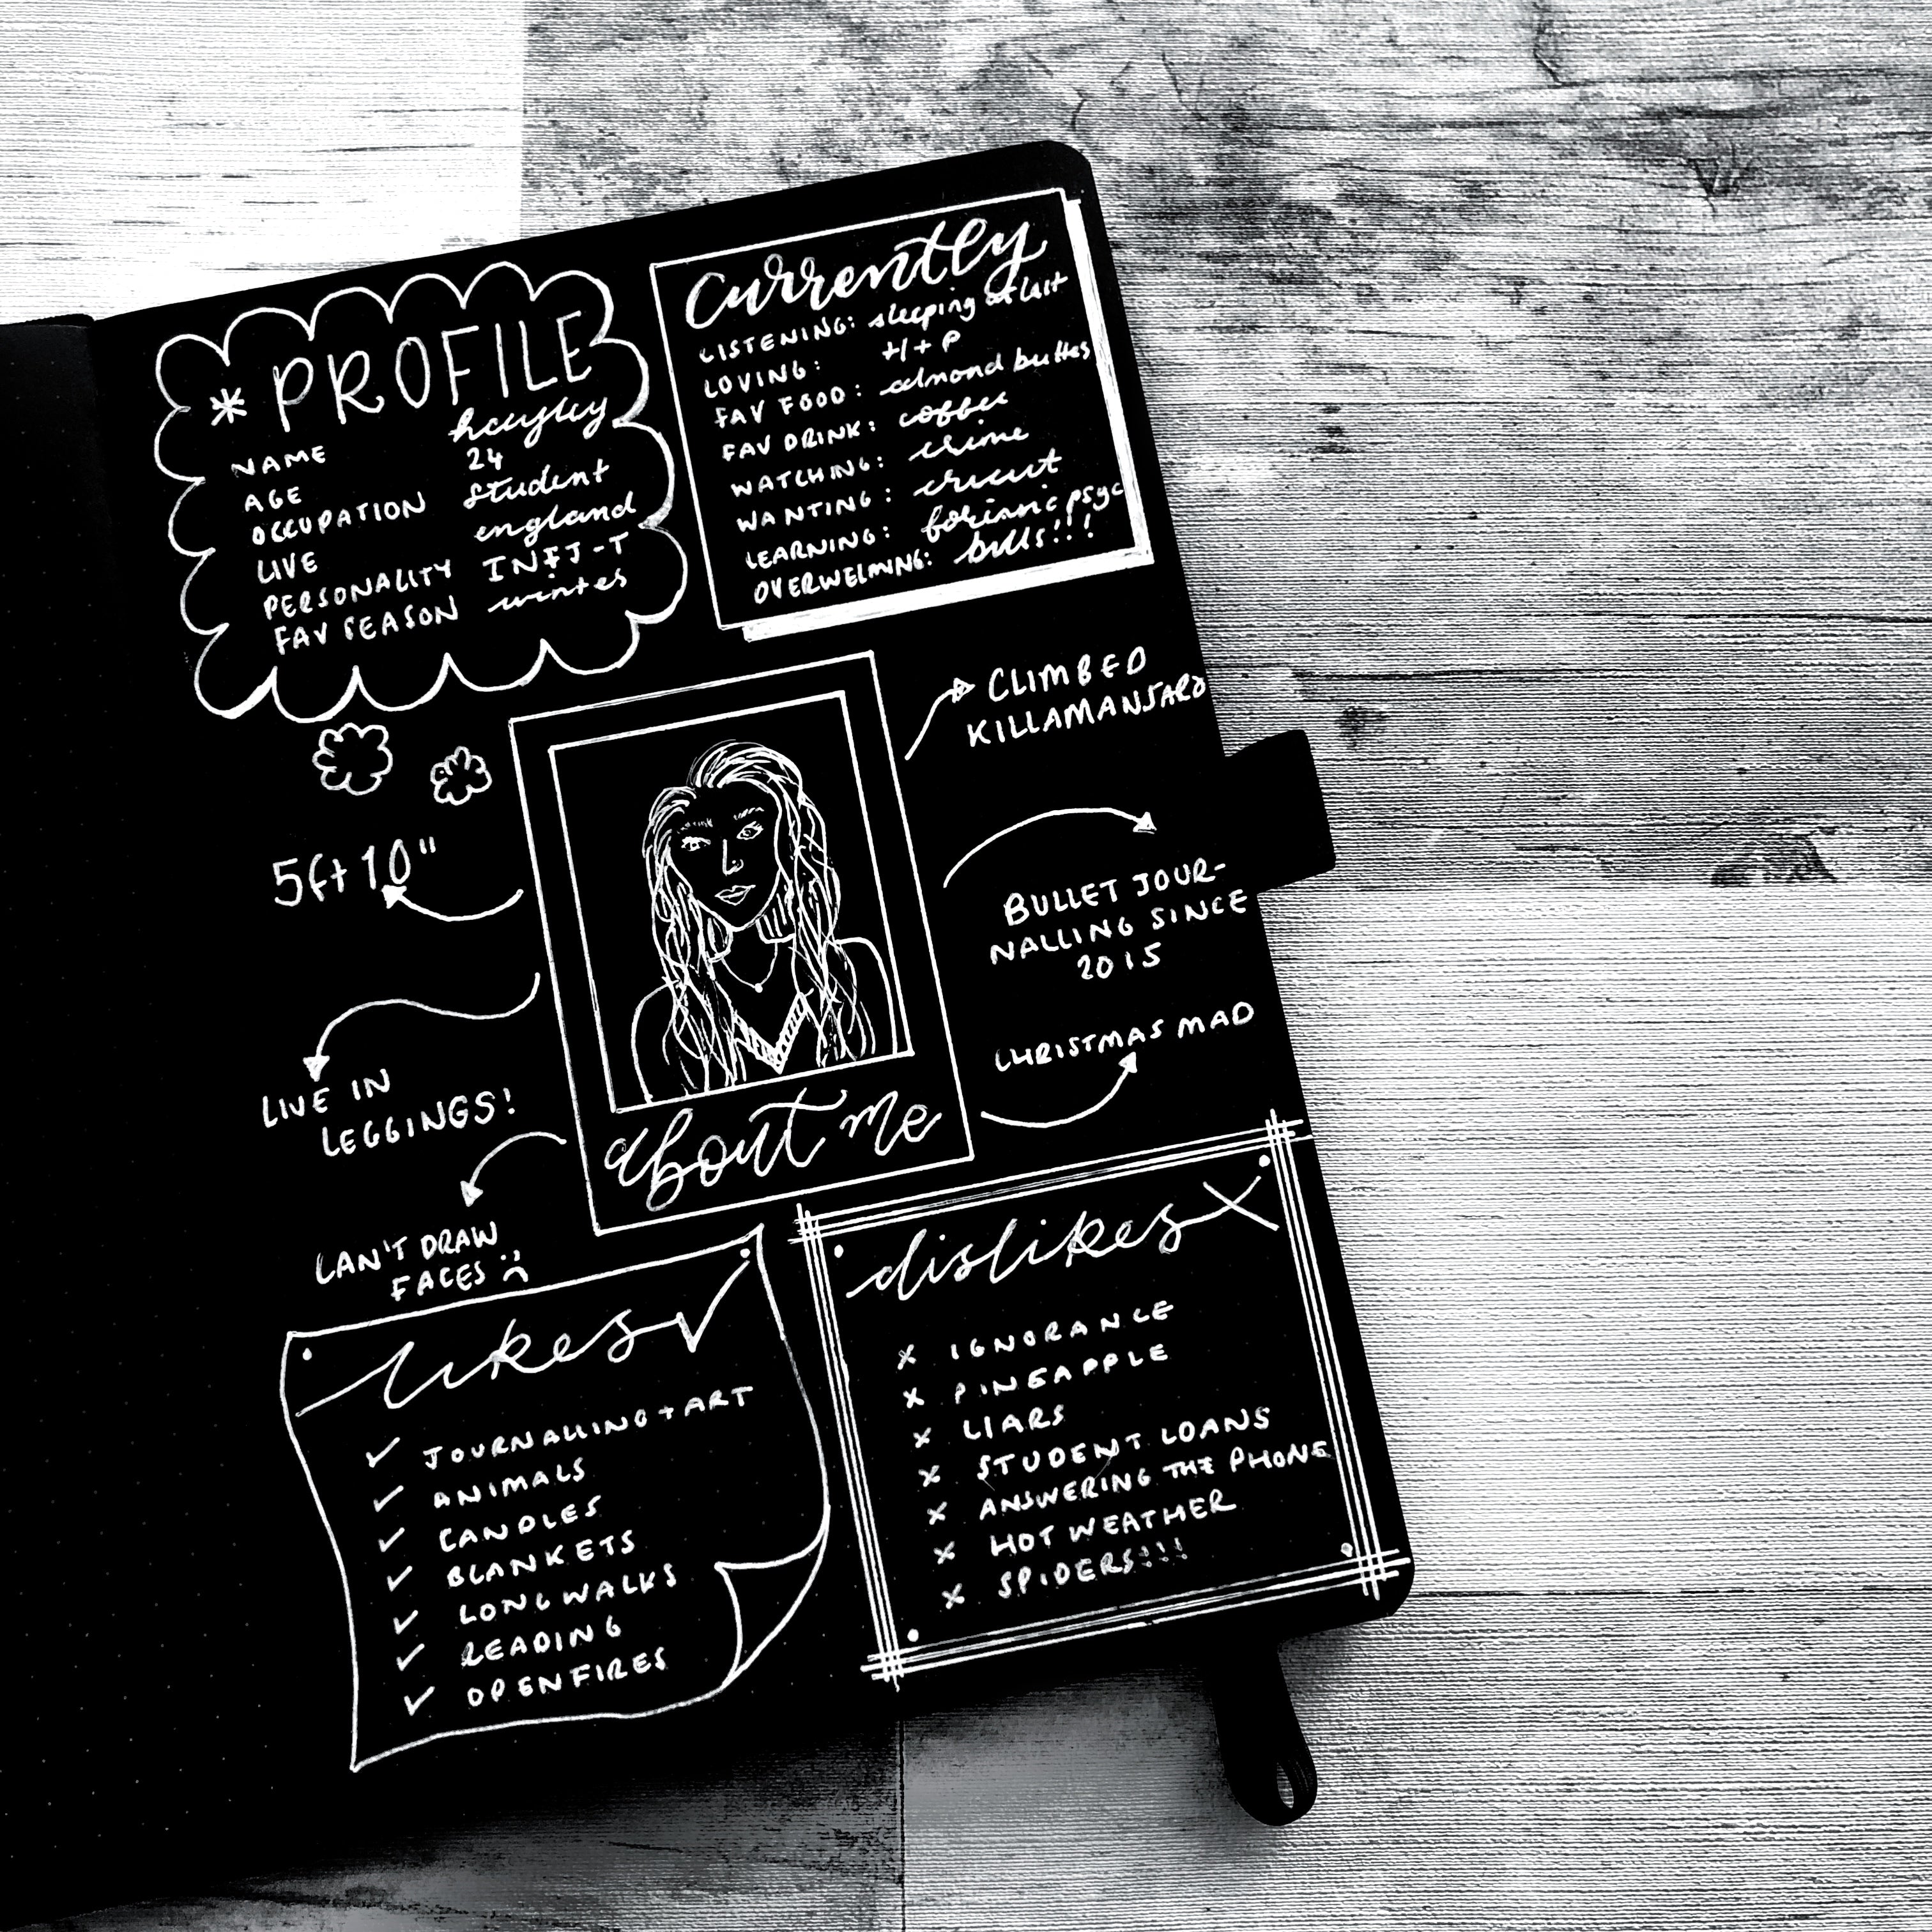 * PROFILE
NAME hayley
AGE 24
OCCUPATION student
LIVE england
PERSONALITY INFJ-T
FAV SEASON winter
currently
LISTENING: sleeping at last
LOVING: H + P
FAV FOOD: almond butter
FAV DRINK: coffee
WATCHING: crime
WANTING: cricut
LEARNING: forensic psyc
OVERWELMING: bills!!!
CLIMBED
KILLAMANJARO
5ft 10"
BULLET JOUR-
NALLING SINCE
2015
LIVE IN
LEGGINGS!
CHRISTMAS MAD
about me
CAN'T DRAW
FACES :(
likes ✓
✓ JOURNALLING + ART
✓ ANIMALS
✓ CANDLES
✓ BLANKETS
✓ LONG WALKS
✓ READING
✓ OPEN FIRES
dislikes X
x IGNORANCE
x PINEAPPLE
x LIARS
x STUDENT LOANS
x ANSWERING THE PHONE
x HOT WEATHER
x SPIDERS!!!